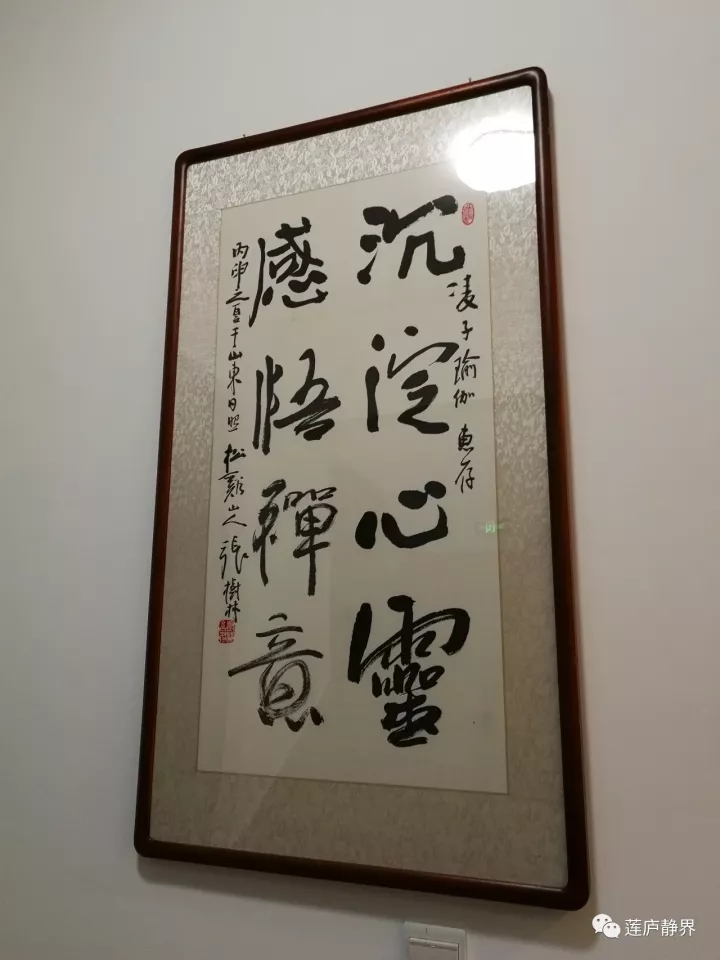 凌子瑜伽 惠存
沉淀心靈
感悟禪意
丙申之夏于山東日照 松谿山人 張樹林
莲庐静界